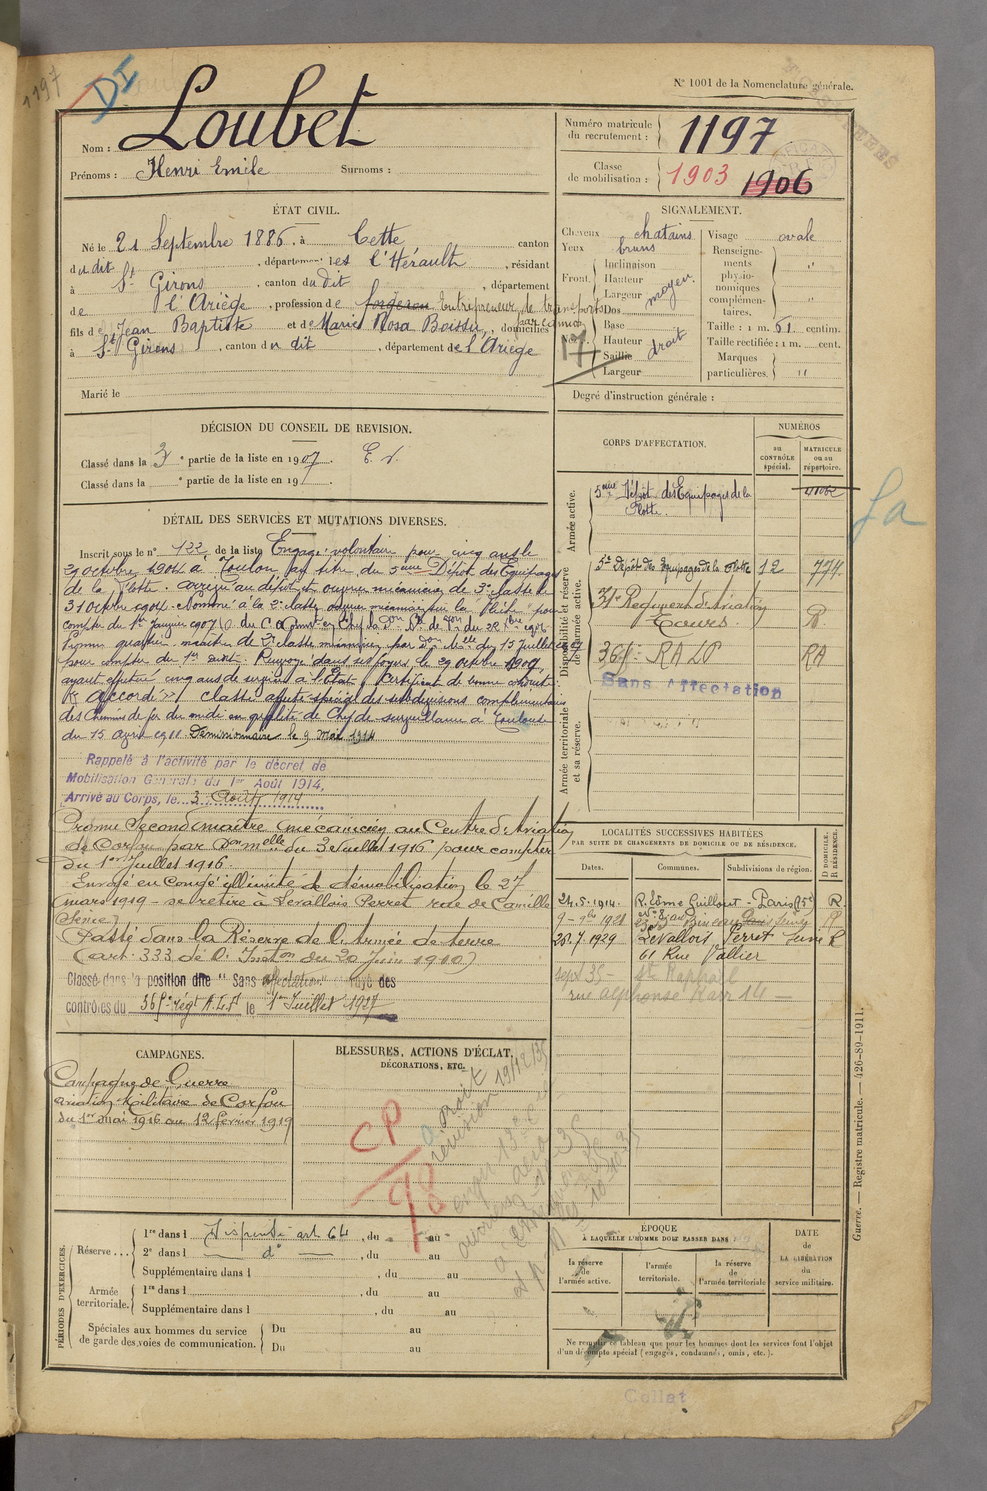 1197
DI
N° 1001 de la Nomenclature générale.
Nom : Loubet
Prénoms : Henri Emile Surnoms :
Numéro matricule du recrutement : 1197
Classe de mobilisation : 1903 1906
ÉTAT CIVIL.
Né le 21 Septembre 1886, à Cette canton
du dit, département les l'Hérault, résidant
à St Girons, canton du dit, département
de l'Ariège, profession de forgeron Entrepreneur de transports
par camion
fils de Jean Baptiste et de Marie Rosa Boissié, domiciliés
à St Girons, canton du dit, département de l'Ariège
Marié le
SIGNALEMENT.
Cheveux chatains
Yeux bruns
Front Inclinaison
Hauteur
Largeur moyen
Nez Dos
Base
Hauteur
Saillie
Largeur droit
Visage ovale
Renseignements physionomiques complémentaires. "
Taille : 1 m. 61 centim.
Taille rectifiée : 1 m. cent.
Marques particulières. "
17
Degré d'instruction générale :
DÉCISION DU CONSEIL DE REVISION.
Classé dans la 3e partie de la liste en 1907. E. V.
Classé dans la e partie de la liste en 19
DÉTAIL DES SERVICES ET MUTATIONS DIVERSES.
Inscrit sous le n° 122 de la liste Engagé volontaire pour cinq ans le
29 octobre 1904 à Toulon au titre du 5ème Dépôt des Equipages
de la Flotte. Arrivé au dépôt et ouvrier mécanicien de 3e classe le
31 octobre 1904. Nommé à la 2e classe ouvrier mécanicien sur la
compter du 1er Janvier 1907
Promu quartier maître de 2e classe mécanicien par Don Mlle du 15 Juillet 1909
pour compter du 1er dudit. Renvoyé dans ses foyers le 29 octobre 1909,
ayant effectué cinq ans de service à l'Etat. Certificat de bonne conduite
"Accordé". classé affecté spécial des subdivisions complémentaires
des Chemins de fer du midi en qualité de Chef de surveillance à Toulouse
du 15 avril 1911. Démissionnaire le 9 mai 1914
Rappelé à l'activité par le décret de
Mobilisation Générale du 1er Août 1914,
Arrivé au Corps, le 3 Août 1914
Promu Second maître mécanicien au Centre d'Aviation
de Corfou par Don Mlle du 3 Juillet 1916 pour compter
du 1er Juillet 1916.
Envoyé en Congé illimité de démobilisation le 27
mars 1919 - se retire à Levallois Perret rue de Camille
(Seine)
Passé dans la Réserve de l'Armée de terre
(art. 333 de l'Inston du 20 Juin 1910)
Classé dans la position dite "Sans affectation" rayé des
contrôles du 364e régt A.L.P. le 1er Juillet 1927
CORPS D'AFFECTATION.
NUMÉROS
au CONTRÔLE spécial.
MATRICULE ou au répertoire.
Armée active.
5ème Dépôt des Equipages de la Flotte. 41062
Disponibilité et réserve de l'armée active.
5e Dépôt des Equipages de la Flotte 12 774
31e Régiment d'aviation Tours. R
364e RALP RA
Sans Affectation
Armée territoriale et sa réserve.
fa
LOCALITÉS SUCCESSIVES HABITÉES
PAR SUITE DE CHANGEMENTS DE DOMICILE OU DE RÉSIDENCE.
D DOMICILE. R RÉSIDENCE.
Dates. Communes. Subdivisions de région.
24.5.1914. R. Edme Guillout - Paris (15e) R.
20.7.1929 Levallois Perret Seine R
61 Rue Vallier
sept 35 - St Raphaël
rue alphonse Karr 14
CAMPAGNES.
Campagne de Guerre
aviation Militaire de Corfou
du 1er mai 1916 au 12 février 1919
BLESSURES, ACTIONS D'ÉCLAT,
DÉCORATIONS, ETC.
CP
98
PÉRIODES D'EXERCICES.
Réserve... 1re dans l Dispensé art 64, du au
2e dans l d°, du au
Supplémentaire dans l, du au
Armée territoriale. 1re dans l, du au
Supplémentaire dans l, du au
Spéciales aux hommes du service de garde des voies de communication. Du au
Du au
ÉPOQUE
À LAQUELLE L'HOMME DOIT PASSER DANS
la réserve de l'armée active.
l'armée territoriale.
la réserve de l'armée territoriale
DATE de LA LIBÉRATION du service militaire.
Ne remplir ce tableau que pour les hommes dont les services font l'objet
d'un décompte spécial (engagés, condamnés, omis, etc.).
Guerre. — Registre matricule. — 426-89-1911.
Collat